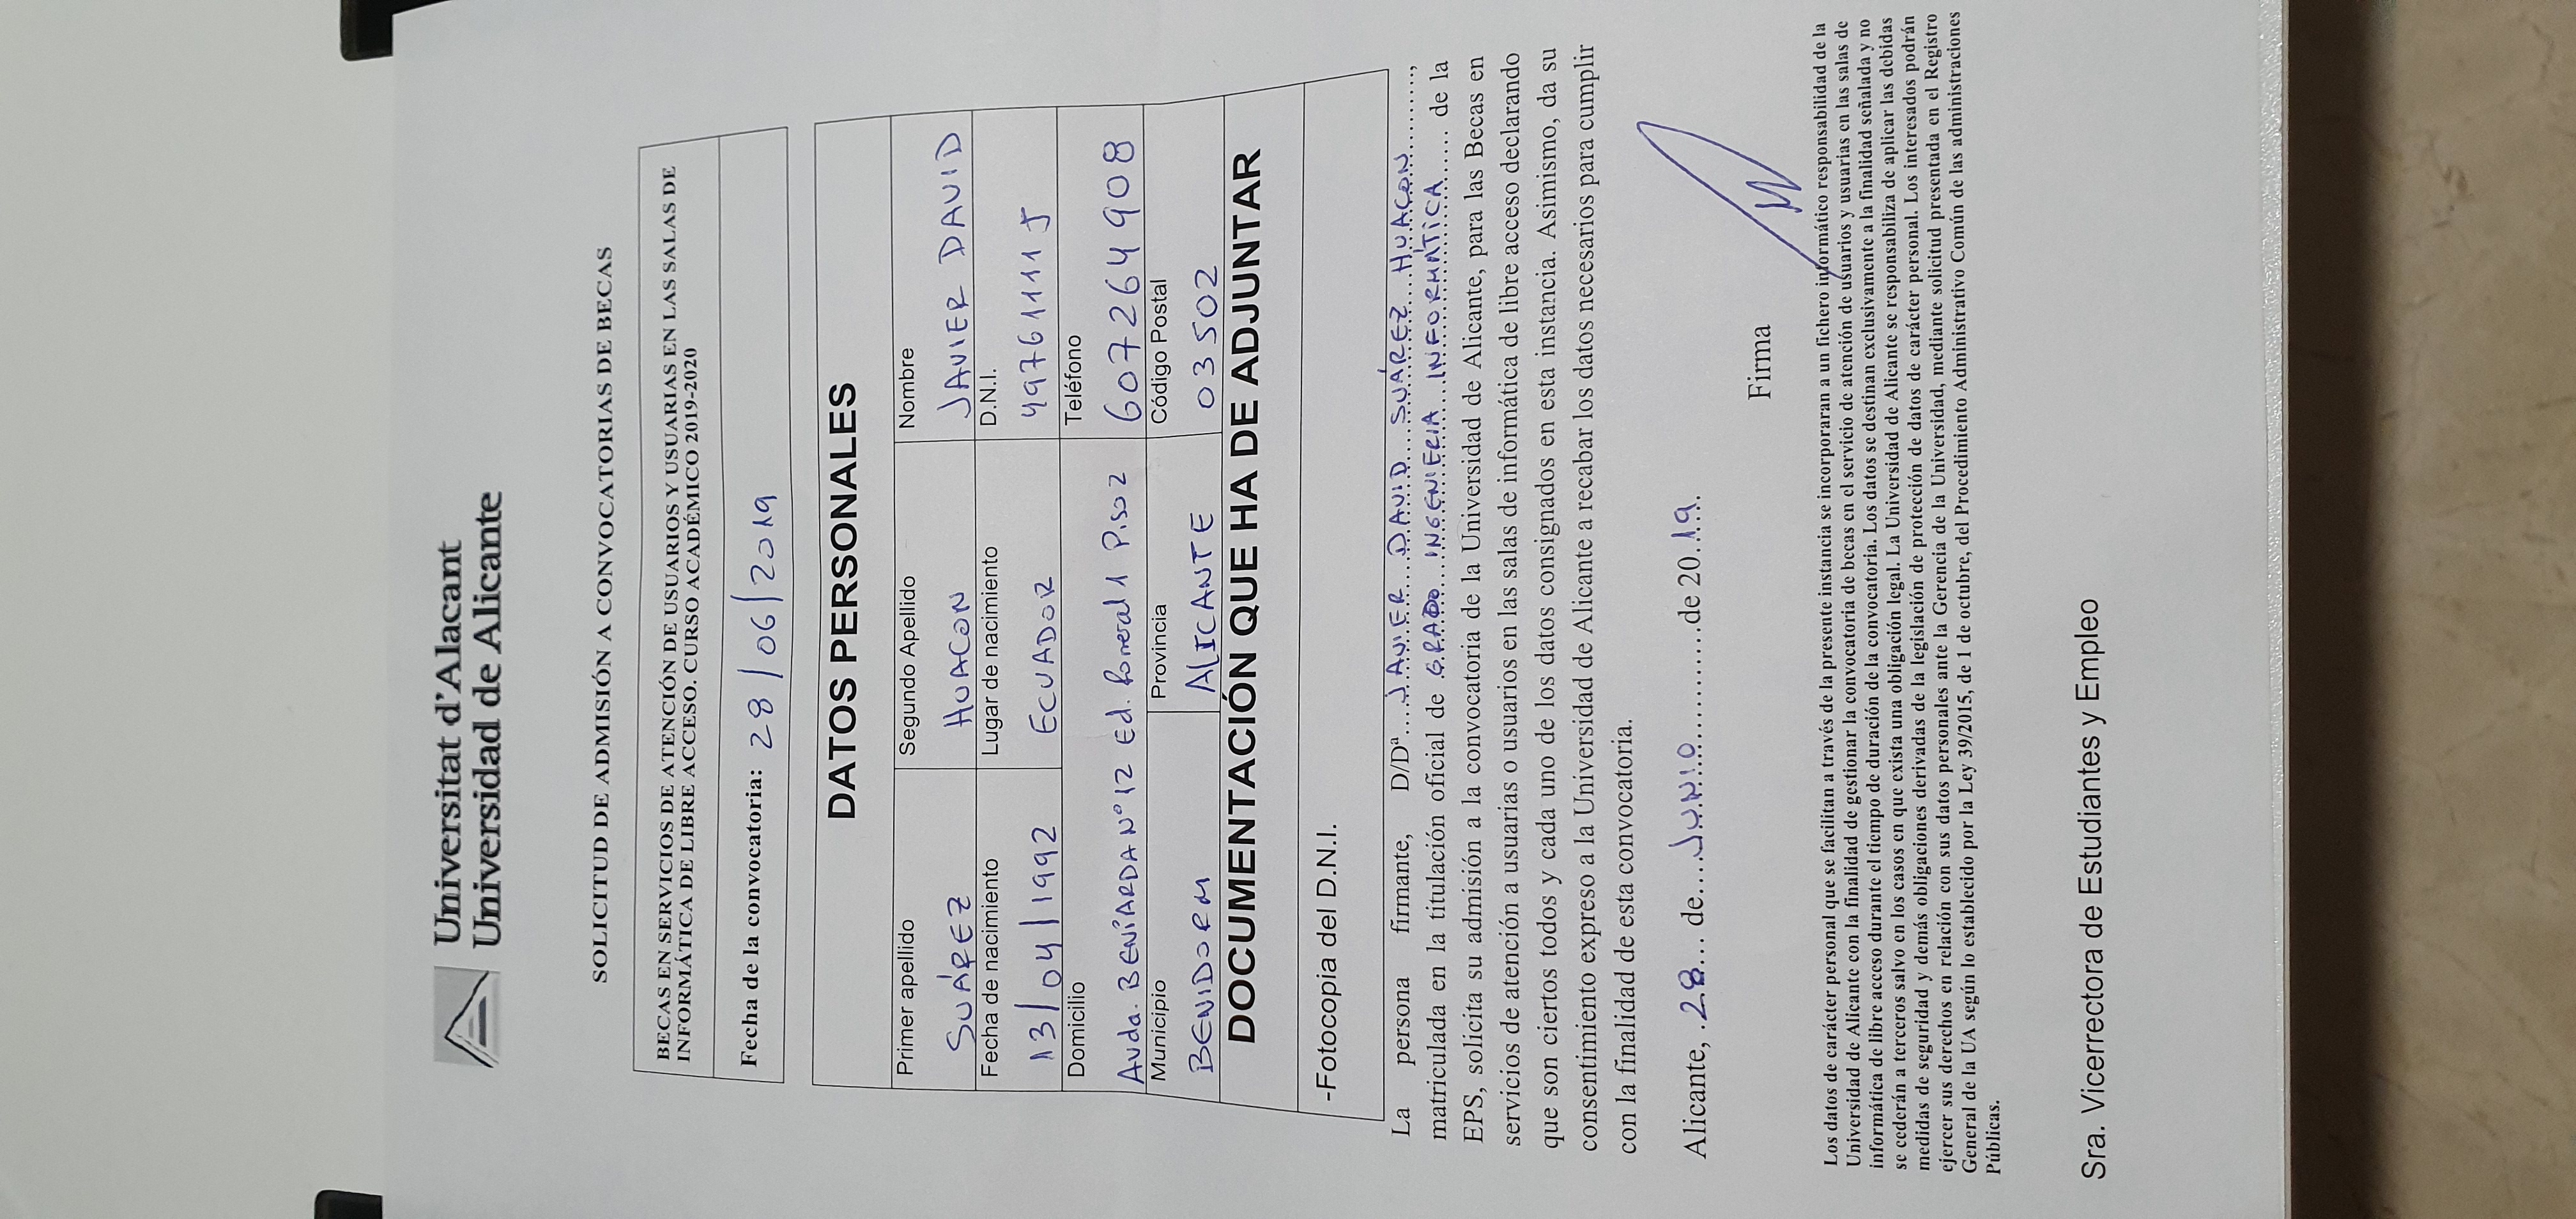 Universitat d'Alacant
Universidad de Alicante
SOLICITUD DE ADMISIÓN A CONVOCATORIAS DE BECAS
BECAS EN SERVICIOS DE ATENCIÓN DE USUARIOS Y USUARIAS EN LAS SALAS DE
INFORMÁTICA DE LIBRE ACCESO. CURSO ACADÉMICO 2019-2020
Fecha de la convocatoria: 28/06/2019
DATOS PERSONALES
Primer apellido Segundo Apellido Nombre
SUÁREZ HUACON JAVIER DAVID
Fecha de nacimiento Lugar de nacimiento D.N.I.
13/04/1992 ECUADOR 49761111J
Domicilio Teléfono
Avda. BENIARDA Nº 12 Ed. 1 Piso 2 607264908
Municipio Provincia Código Postal
BENIDORM ALICANTE 03502
DOCUMENTACIÓN QUE HA DE ADJUNTAR
-Fotocopia del D.N.I.
La persona firmante, D/Dª....JAVIER DAVID SUÁREZ HUACON.........,
matriculada en la titulación oficial de GRADO INGENIERIA INFORMÁTICA..... de la
EPS, solicita su admisión a la convocatoria de la Universidad de Alicante, para las Becas en
servicios de atención a usuarias o usuarios en las salas de informática de libre acceso declarando
que son ciertos todos y cada uno de los datos consignados en esta instancia. Asimismo, da su
consentimiento expreso a la Universidad de Alicante a recabar los datos necesarios para cumplir
con la finalidad de esta convocatoria.
Alicante, .28... de....JUNIO............de 20.19.
Firma
Los datos de carácter personal que se facilitan a través de la presente instancia se incorporaran a un fichero informático responsabilidad de la
Universidad de Alicante con la finalidad de gestionar la convocatoria de becas en el servicio de atención de usuarios y usuarias en las salas de
informática de libre acceso durante el tiempo de duración de la convocatoria. Los datos se destinan exclusivamente a la finalidad señalada y no
se cederán a terceros salvo en los casos en que exista una obligación legal. La Universidad de Alicante se responsabiliza de aplicar las debidas
medidas de seguridad y demás obligaciones derivadas de la legislación de protección de datos de carácter personal. Los interesados podrán
ejercer sus derechos en relación con sus datos personales ante la Gerencia de la Universidad, mediante solicitud presentada en el Registro
General de la UA según lo establecido por la Ley 39/2015, de 1 de octubre, del Procedimiento Administrativo Común de las administraciones
Públicas.
Sra. Vicerrectora de Estudiantes y Empleo